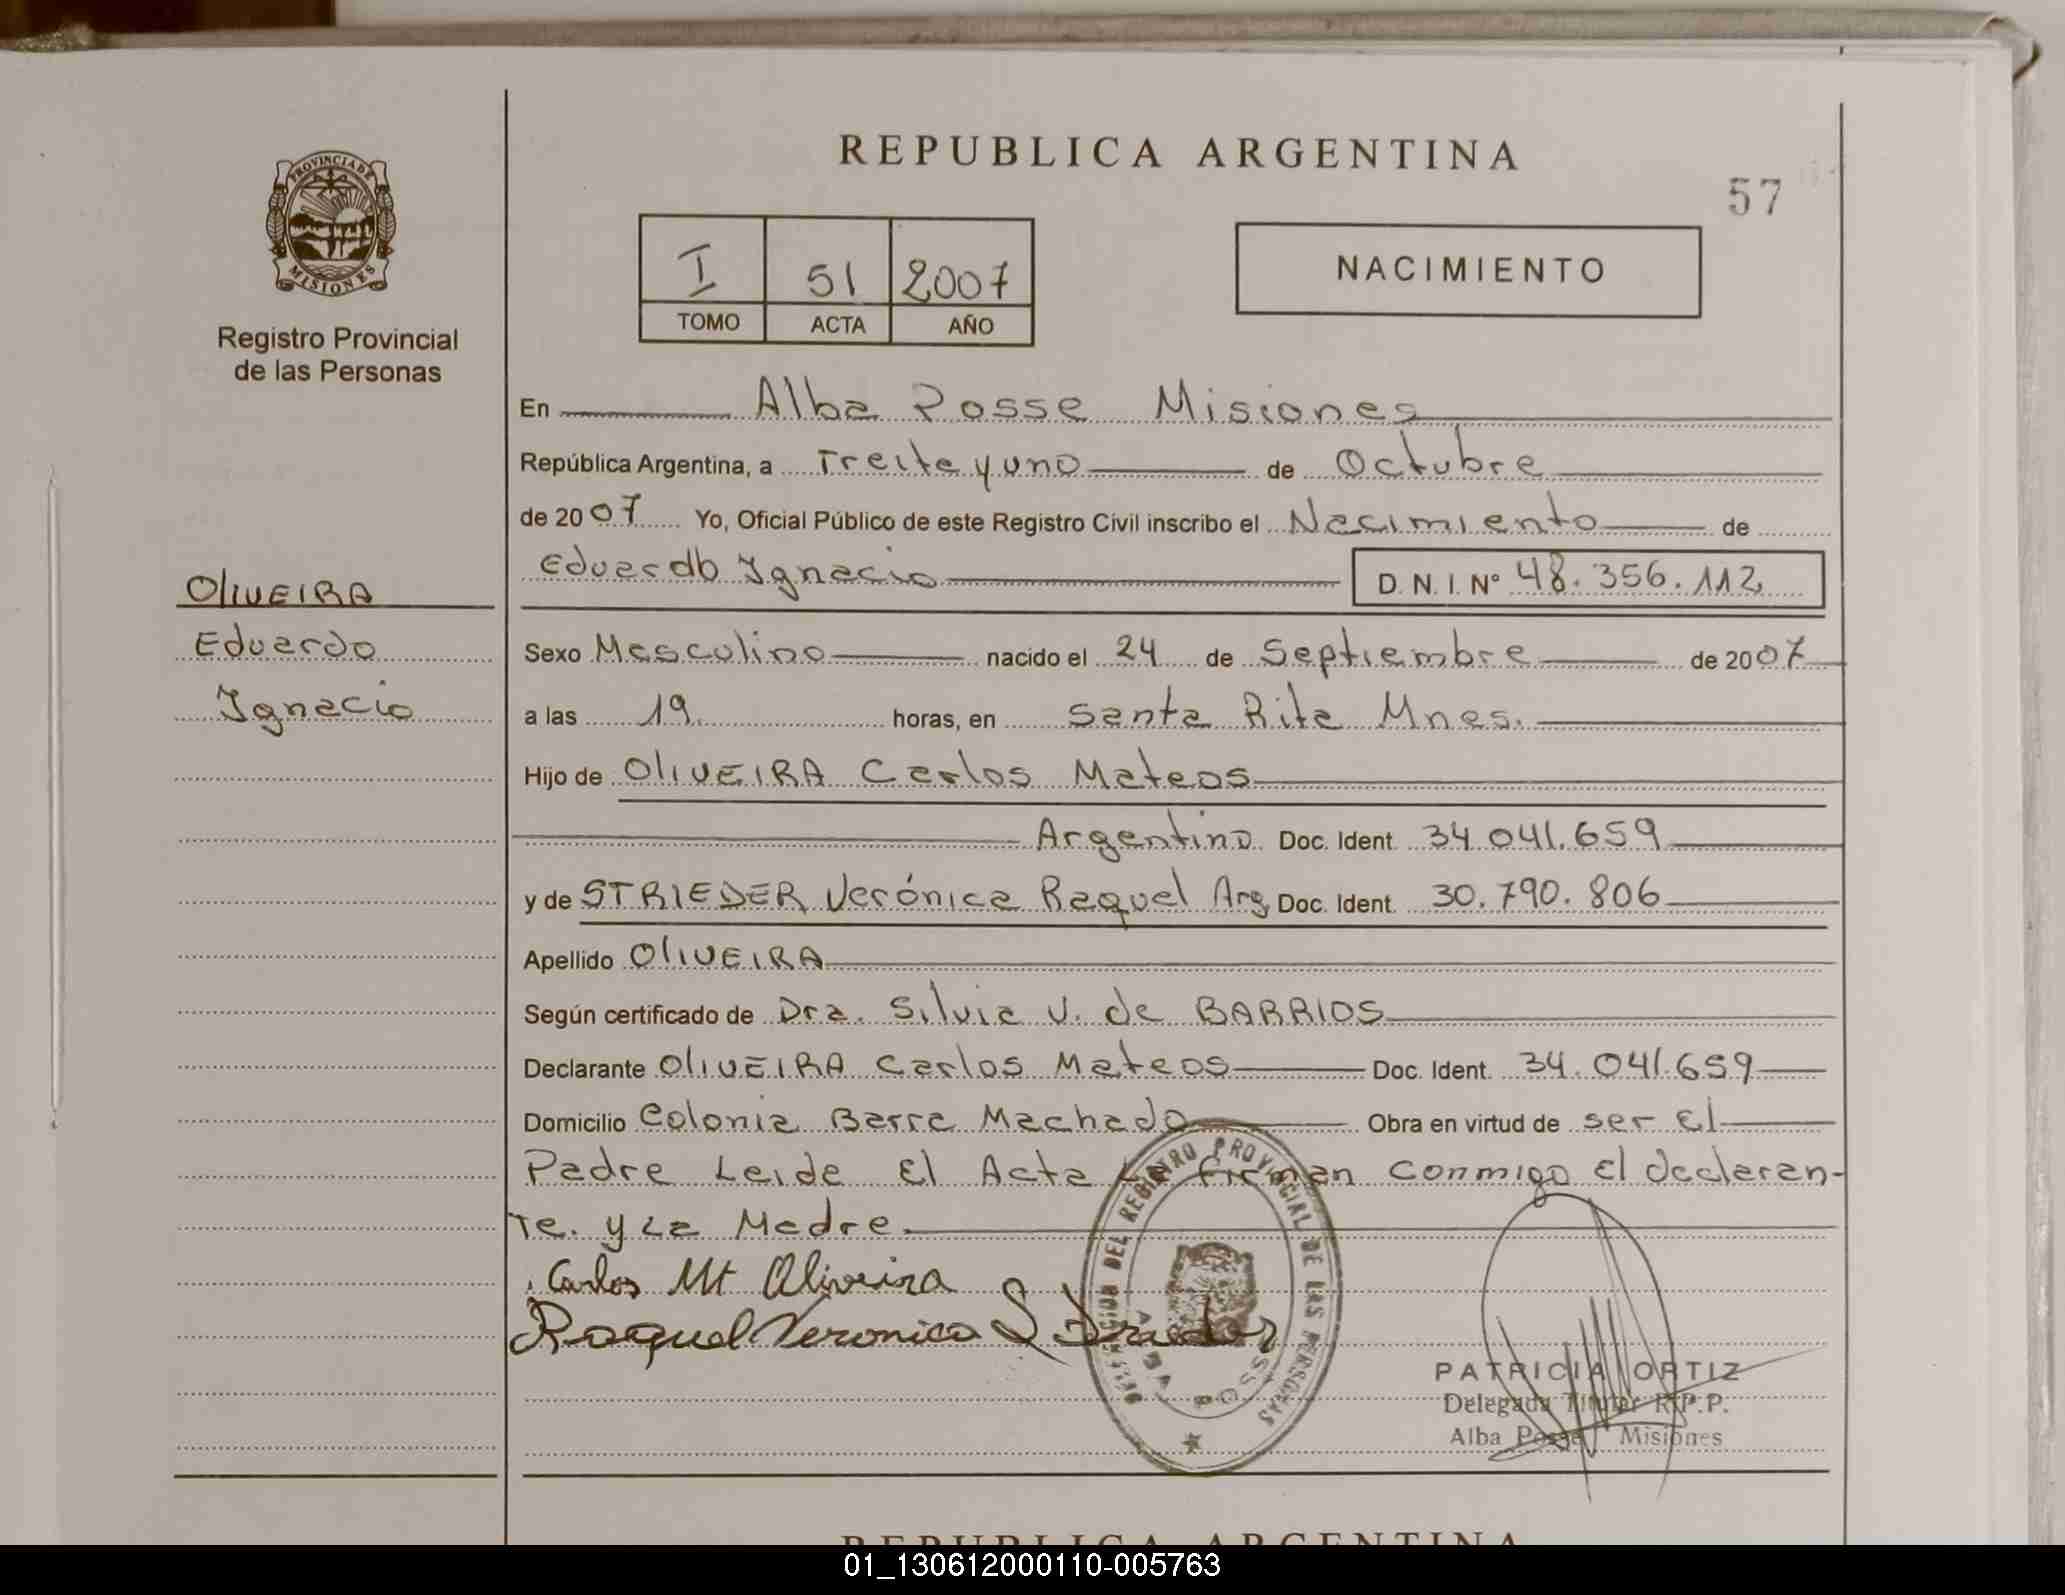 REPUBLICA ARGENTINA
57
PROVINCIA DE
MISIONES
Registro Provincial
de las Personas
I 51 2007
TOMO ACTA AÑO
NACIMIENTO
En Alba Posse Misiones
República Argentina, a Treita y uno de Octubre
de 2007 Yo, Oficial Público de este Registro Civil inscribo el Nacimiento de
Eduardo Ignacio D. N. I. Nº 48.356.112
OLIVEIRA
Eduardo
Ignacio
Sexo Masculino nacido el 24 de Septiembre de 2007
a las 19. horas, en Santa Rita Mnes.
Hijo de OLIVEIRA Carlos Mateos
Argentino Doc. Ident. 34.041.659
y de STRIEDER Verónica Raquel Arg Doc. Ident. 30.790.806
Apellido OLIVEIRA
Según certificado de Dra. Silvia V. de BARRIOS
Declarante OLIVEIRA Carlos Mateos Doc. Ident. 34.041.659
Domicilio Colonia Barra Machado Obra en virtud de ser El
Padre Leida El Acta La firman conmigo El declaran-
Te. y La Madre.
Carlos Mt Oliveira
Raquel Veronica S
DELEGACION DEL REGISTRO PROVINCIAL DE LAS PERSONAS
ALBA POSSE
PATRICIA ORTIZ
Delegada Titular R.P.P.
Alba Posse Misiones
REPUBLICA ARGENTINA
01_130612000110-005763